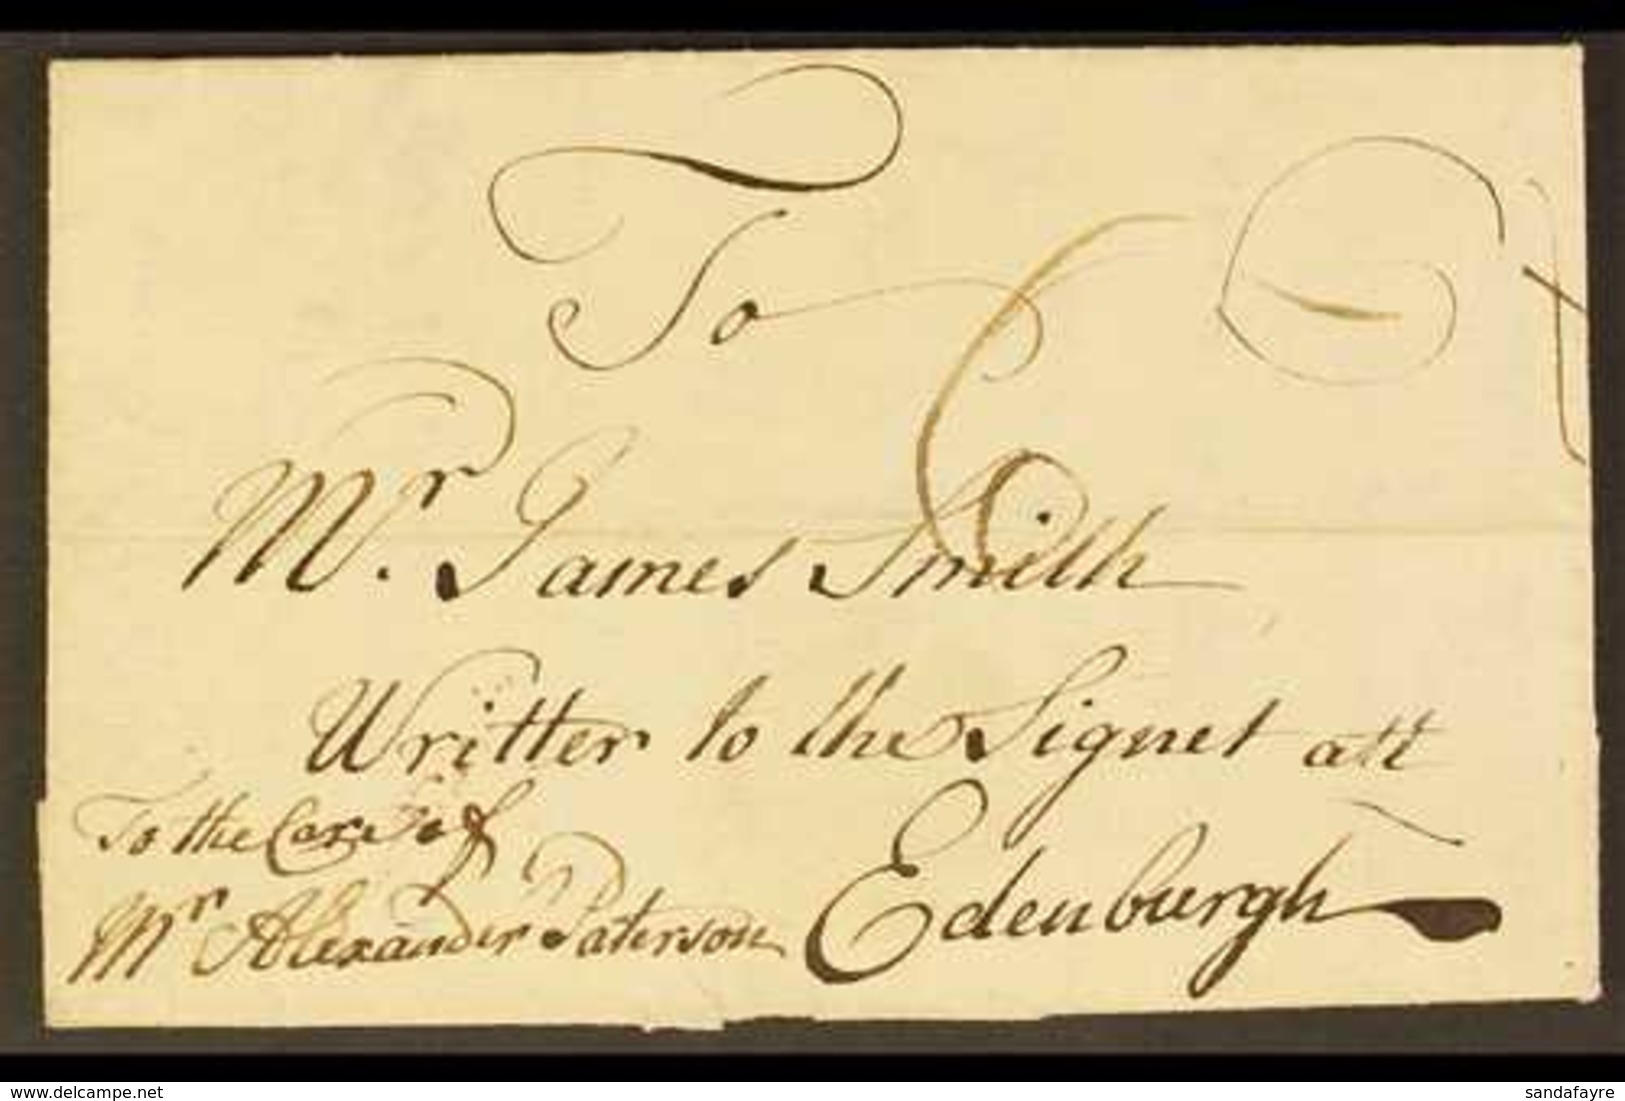 To
6
Mr. James Smith
Writter to the Signet att
Edenburgh
To the Care of
Mr Alexander Paterson
www.delcampe.net
sandafayre